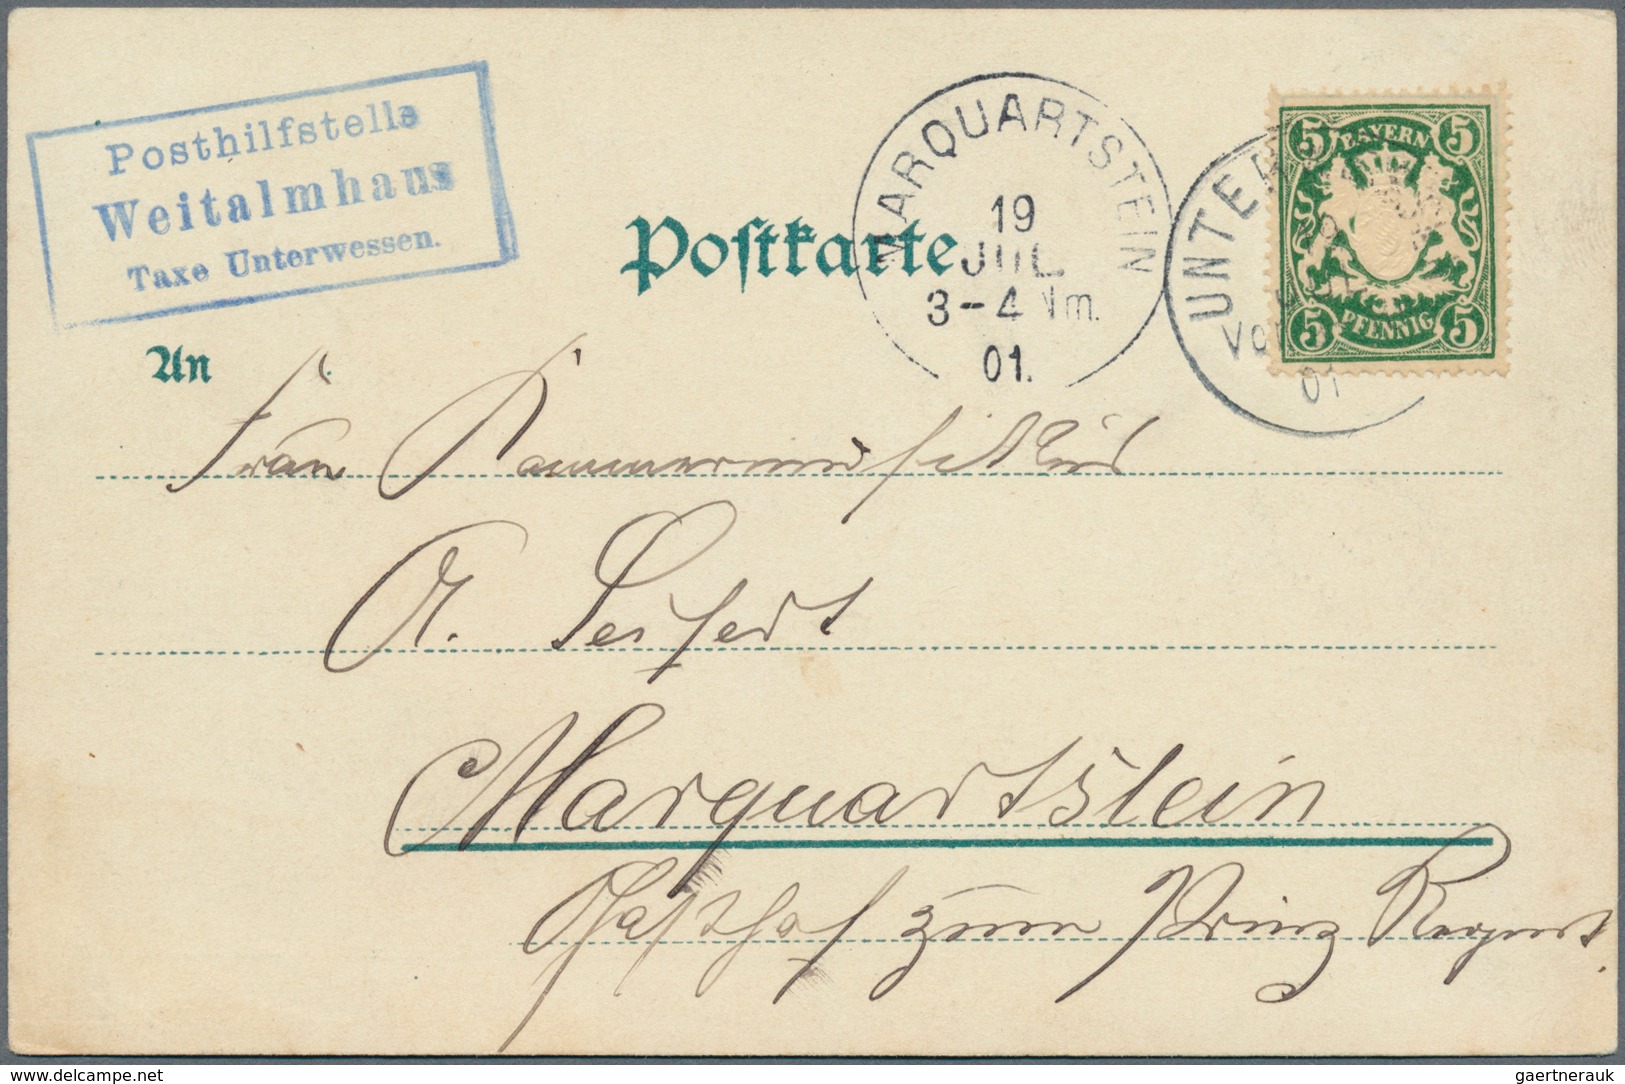 Posthilfstelle
Weitalmhaus
Taxe Unterwessen.
MARQUARTSTEIN
19
JUL
3-4 Nm.
01.
UNTER
Vor
01
5 BAYERN 5
5 PFENNIG 5
Postkarte
An
Frau
A. Seifert
Marquartstein
Gasthof zum Prinz Regent.
© www.delcampe.net
gaertnerauk